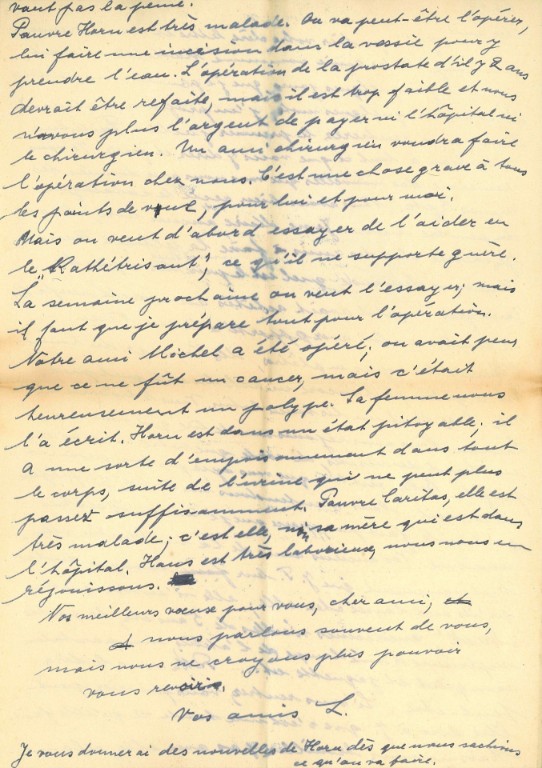 vaut pas la peine.
Pauvre Horn est très malade. On va peut-être l'opérer,
lui faire une incision dans la vessie pour y
prendre l'eau. L'opération de la prostate d'il y 2 ans
devrait être refaite, mais il est trop faible et nous
n'avons plus l'argent de payer ni l'hôpital ni
le chirurgien. Un ami chirurgien voudra faire
l'opération chez nous. C'est une chose grave à tous
les points de vue, pour lui et pour moi.
Mais on veut d'abord essayer de l'aider en
le „Kathétrisant", ce qu'il ne supporte guère.
La semaine prochaine on veut l'essayer; mais
il faut que je prépare tout pour l'opération.
Notre ami Michel a été opéré; on avait peur
que ce ne fût un cancer, mais c'était
heureusement un polype. Sa femme nous
l'a écrit. Horn est dans un état pitoyable; il
a une sorte d'empoisonnement dans tout
le corps, suite de l'urine qui ne peut plus
passer suffisamment. Pauvre Caritas, elle est
très malade; c'est elle, non sa mère qui est dans
l'hôpital. Hans est très laborieux, nous nous en
réjouissons.
Nos meilleurs vœux pour vous, cher ami,
nous parlons souvent de vous,
mais nous ne croyons plus pouvoir
vous revoir.
Vos amis L.
Je vous donnerai des nouvelles de Horn dès que nous sachions
ce qu'on va faire.